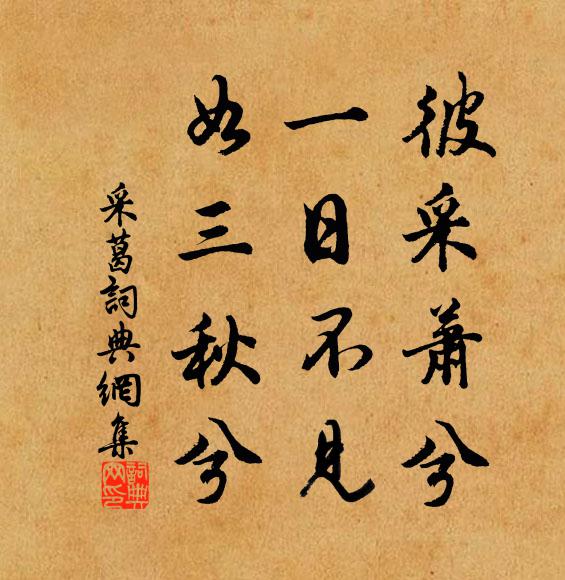 彼采蕭兮
一日不見
如三秋兮
采葛詞典網集
詞典网印